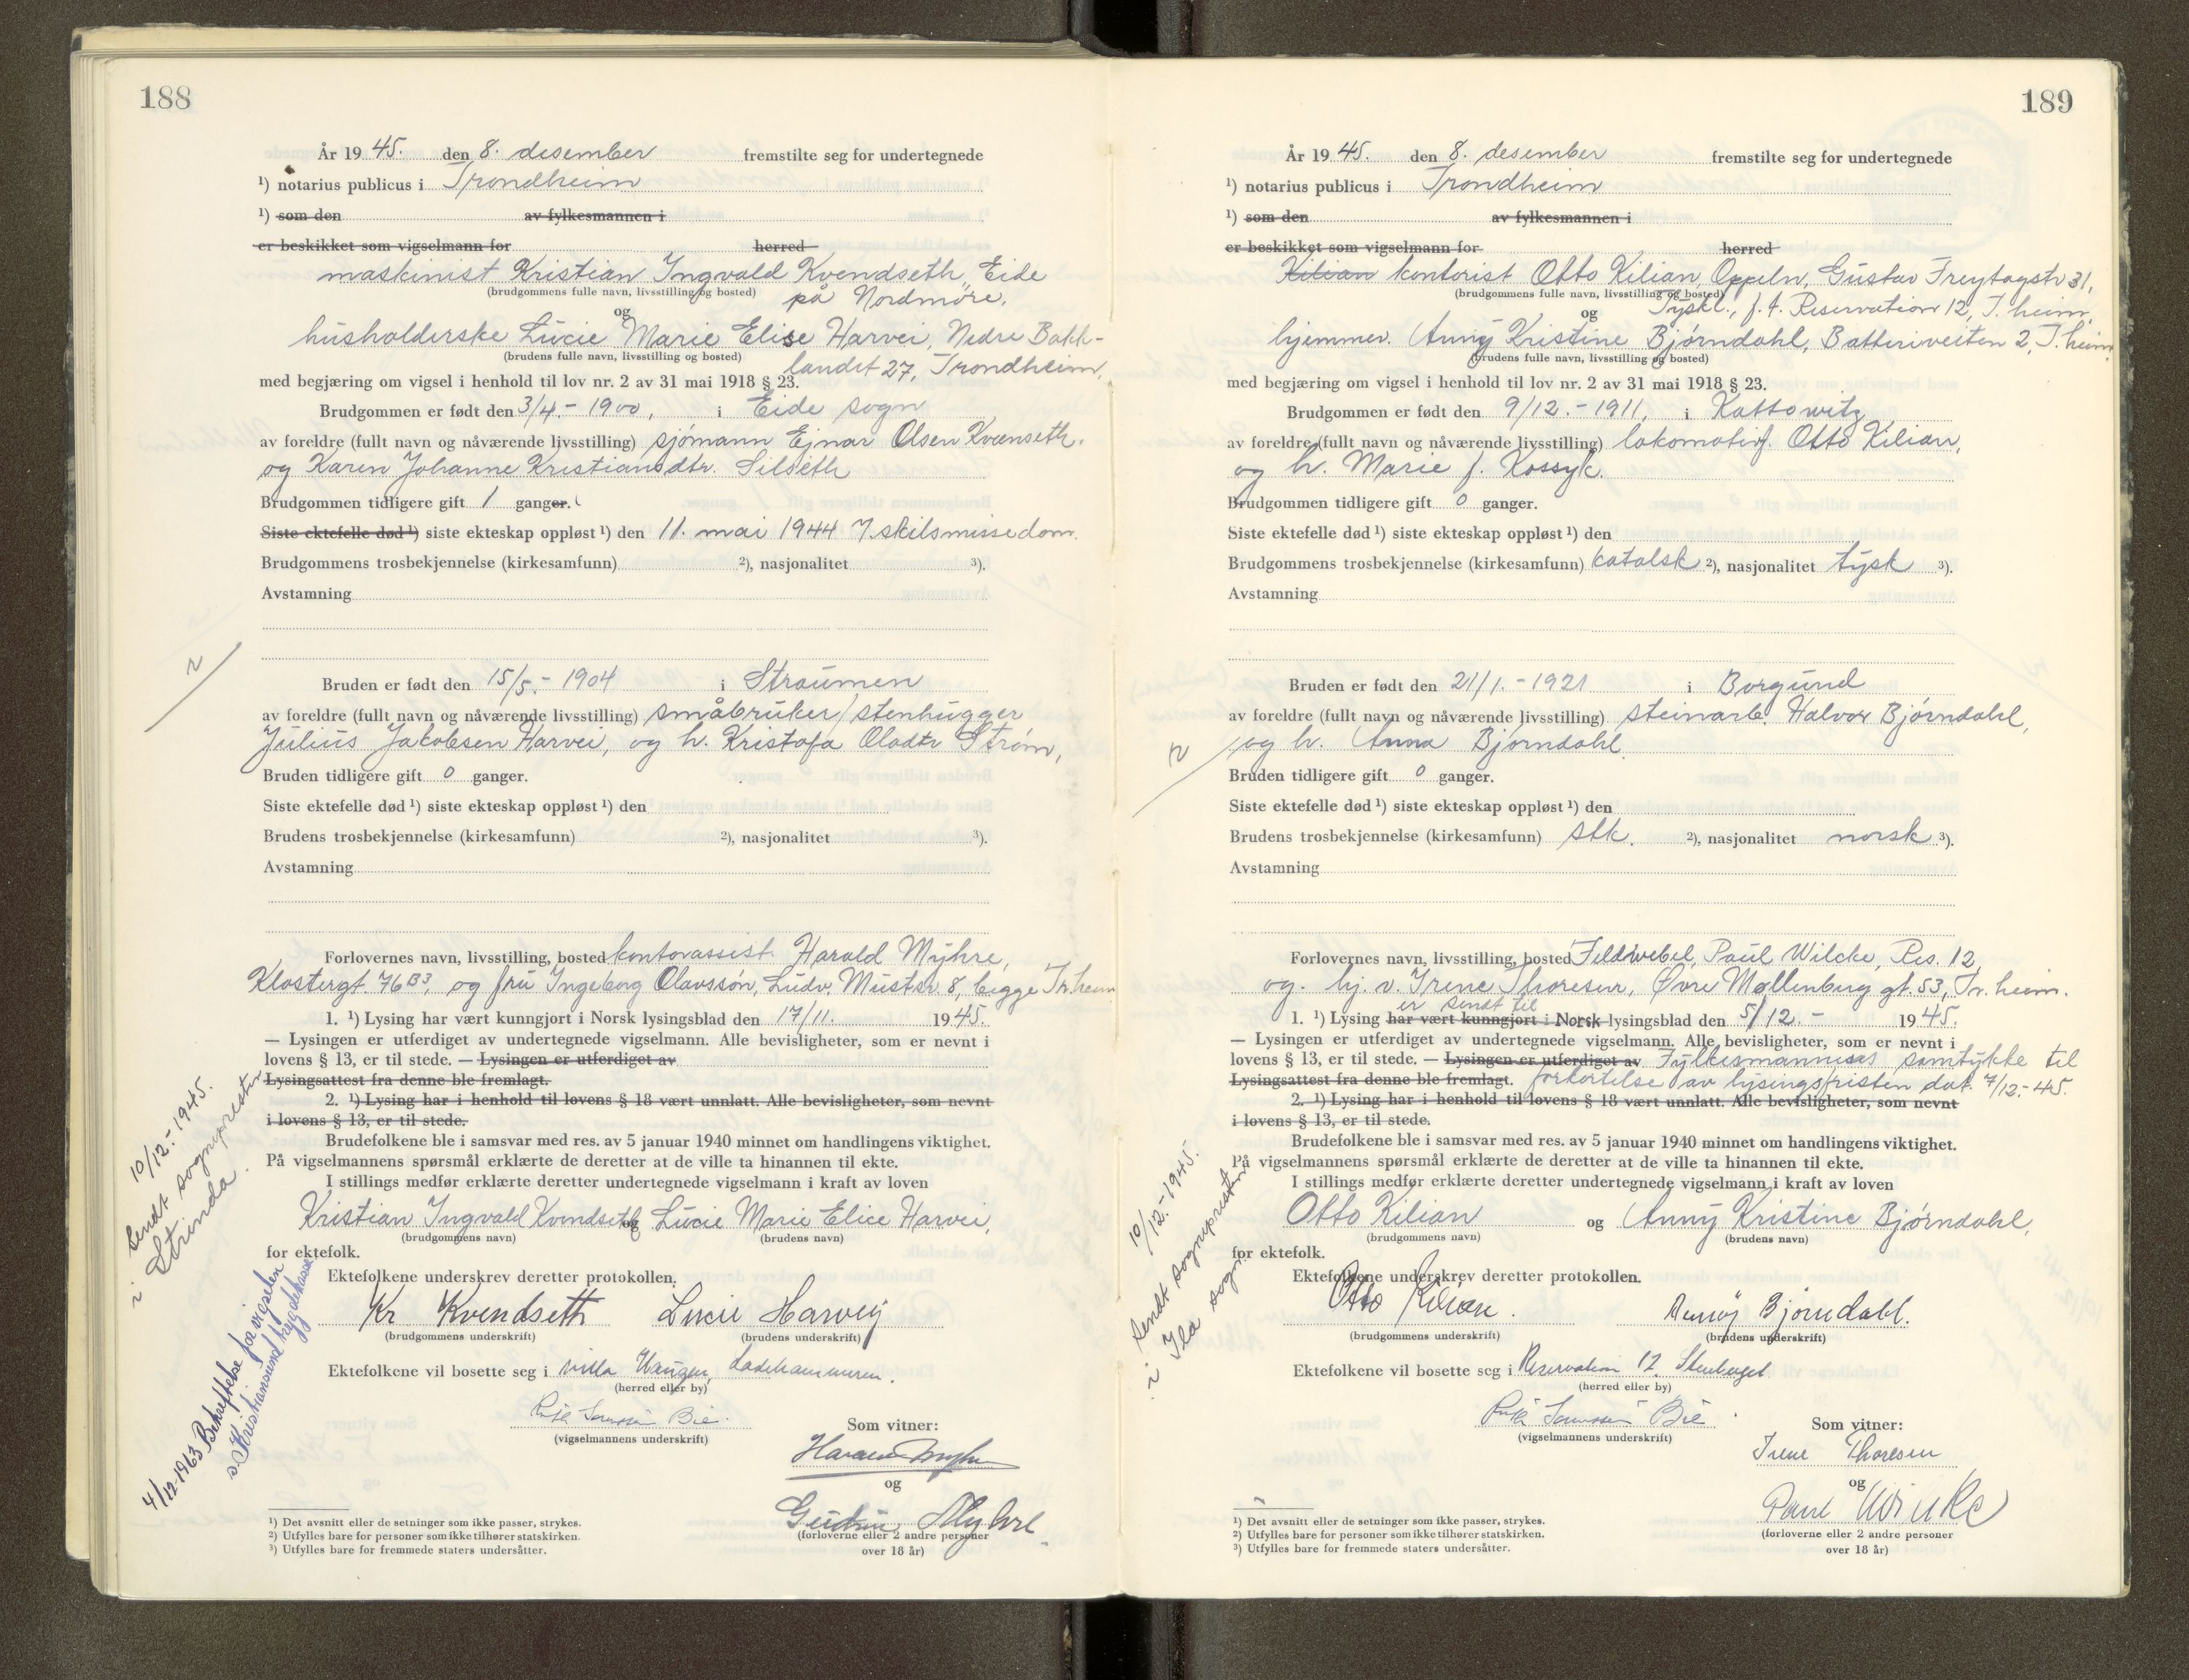 188
År 1945. den 8. desember fremstilte seg for undertegnede
¹) notarius publicus i Trondheim
¹) som den av fylkesmannen i
er beskikket som vigselmann for herred
maskinist Kristian Ingvald Kvendseth, Eide
(brudgommens fulle navn, livsstilling og bosted) på Nordmøre,
og
husholderske Lucie Marie Elise Harvei, Nedre Bakk-
(brudens fulle navn, livsstilling og bosted) landet 27, Trondheim,
med begjæring om vigsel i henhold til lov nr. 2 av 31 mai 1918 § 23.
Brudgommen er født den 3/4.- 1900, i Eide sogn
av foreldre (fullt navn og nåværende livsstilling) sjömann Ejnar Olsen Kvenseth.
og Karen Johanne Kristiansdtr. Silseth
Brudgommen tidligere gift 1 ganger.
Siste ektefelle død ¹) siste ekteskap oppløst ¹) den 11. mai 1944 v. skilsmissedom.
Brudgommens trosbekjennelse (kirkesamfunn) ²), nasjonalitet ³).
Avstamning
Bruden er født den 15/5.- 1904 i Straumen
av foreldre (fullt navn og nåværende livsstilling) småbruker/stenhugger
Julius Jakobsen Harvei, og h. Kristofa Oladtr Strøm,
Bruden tidligere gift 0 ganger.
Siste ektefelle død ¹) siste ekteskap oppløst ¹) den
Brudens trosbekjennelse (kirkesamfunn) ²), nasjonalitet ³).
Avstamning
Forlovernes navn, livsstilling, bosted kontorassist. Harald Myhre,
Klostergt. 76 B³, og fru Ingeborg Olavssön, Ludv. Mustsv. 8, begge Tr.heim
1. ¹) Lysing har vært kunngjort i Norsk lysingsblad den 17/11. 1945.
— Lysingen er utferdiget av undertegnede vigselmann. Alle bevisligheter, som er nevnt i
lovens § 13, er til stede. — Lysingen er utferdiget av
Lysingsattest fra denne ble fremlagt.
2. ¹) Lysing har i henhold til lovens § 18 vært unnlatt. Alle bevisligheter, som nevnt
i lovens § 13, er til stede.
Brudefolkene ble i samsvar med res. av 5 januar 1940 minnet om handlingens viktighet.
På vigselmannens spørsmål erklærte de deretter at de ville ta hinannen til ekte.
I stillings medfør erklærte deretter undertegnede vigselmann i kraft av loven
Kristian Ingvald Kvendseth og Lucie Marie Elice Harvei,
(brudgommens navn) (brudens navn)
for ektefolk.
Ektefolkene underskrev deretter protokollen.
Kr Kvendseth Lucie Harveij
(brudgommens underskrift) (brudens underskrift)
Ektefolkene vil bosette seg i Villa Ladehammeren.
(herred eller by)
Bie.
(vigselmannens underskrift)
Som vitner:
Harald Myhre
og
Gudrun Myhre
(forloverne eller 2 andre personer
over 18 år)
¹) Det avsnitt eller de setninger som ikke passer, strykes.
²) Utfylles bare for personer som ikke tilhører statskirken.
³) Utfylles bare for fremmede staters undersåtter.
10/12.-1945.
Sendt sognepresten
i Strinda.
4/12-1963 Bekreftelse for vigselen
s. Kristiansund trygdekasse
189
År 1945. den 8. desember fremstilte seg for undertegnede
¹) notarius publicus i Trondheim
¹) som den av fylkesmannen i
er beskikket som vigselmann for herred
Kilian kontorist Otto Kilian, Oppeln, Gustav Freytagstr 31,
(brudgommens fulle navn, livsstilling og bosted) Tyskl., f.t. Reservation 12, T.heim,
og
hjemmev. Anny Kristine Bjørndahl, Batteriveiten 2, T.heim,
(brudens fulle navn, livsstilling og bosted)
med begjæring om vigsel i henhold til lov nr. 2 av 31 mai 1918 § 23.
Brudgommen er født den 9/12.- 1911, i Kattowitz
av foreldre (fullt navn og nåværende livsstilling) lokomotivf. Otto Kilian,
og h. Marie f. Kossyk.
Brudgommen tidligere gift 0 ganger.
Siste ektefelle død ¹) siste ekteskap oppløst ¹) den
Brudgommens trosbekjennelse (kirkesamfunn) katolsk ²), nasjonalitet tysk ³).
Avstamning
Bruden er født den 21/1.- 1921 i Borgund
av foreldre (fullt navn og nåværende livsstilling) steinarb. Halvor Bjørndahl,
og h. Anna Bjørndahl.
Bruden tidligere gift 0 ganger.
Siste ektefelle død ¹) siste ekteskap oppløst ¹) den
Brudens trosbekjennelse (kirkesamfunn) stk. ²), nasjonalitet norsk ³).
Avstamning
Forlovernes navn, livsstilling, bosted Feldwebel, Paul Wilcke, Res. 12
og. hj. v. Irene Thoresen, Øvre Møllenberg gt. 53, Tr.heim.
er sendt til
1. ¹) Lysing har vært kunngjort i Norsk lysingsblad den 5/12.- 1945.
— Lysingen er utferdiget av undertegnede vigselmann. Alle bevisligheter, som er nevnt i
lovens § 13, er til stede. — Lysingen er utferdiget av Fylkesmannens samtykke til
Lysingsattest fra denne ble fremlagt. forkortelse av lysingsfristen dat. 7/12.-45.
2. ¹) Lysing har i henhold til lovens § 18 vært unnlatt. Alle bevisligheter, som nevnt
i lovens § 13, er til stede.
Brudefolkene ble i samsvar med res. av 5 januar 1940 minnet om handlingens viktighet.
På vigselmannens spørsmål erklærte de deretter at de ville ta hinannen til ekte.
I stillings medfør erklærte deretter undertegnede vigselmann i kraft av loven
Otto Kilian og Anny Kristine Bjørndahl,
(brudgommens navn) (brudens navn)
for ektefolk.
Ektefolkene underskrev deretter protokollen.
Otto Kilian. Annÿ Bjørndahl.
(brudgommens underskrift) (brudens underskrift)
Ektefolkene vil bosette seg i Reservation 12
(herred eller by)
Bie
(vigselmannens underskrift)
Som vitner:
Irene Thoresen
og
Paul Wilcke
(forloverne eller 2 andre personer
over 18 år)
¹) Det avsnitt eller de setninger som ikke passer, strykes.
²) Utfylles bare for personer som ikke tilhører statskirken.
³) Utfylles bare for fremmede staters undersåtter.
10/12.-1945.
Sendt sognepresten
i Ila sogn.